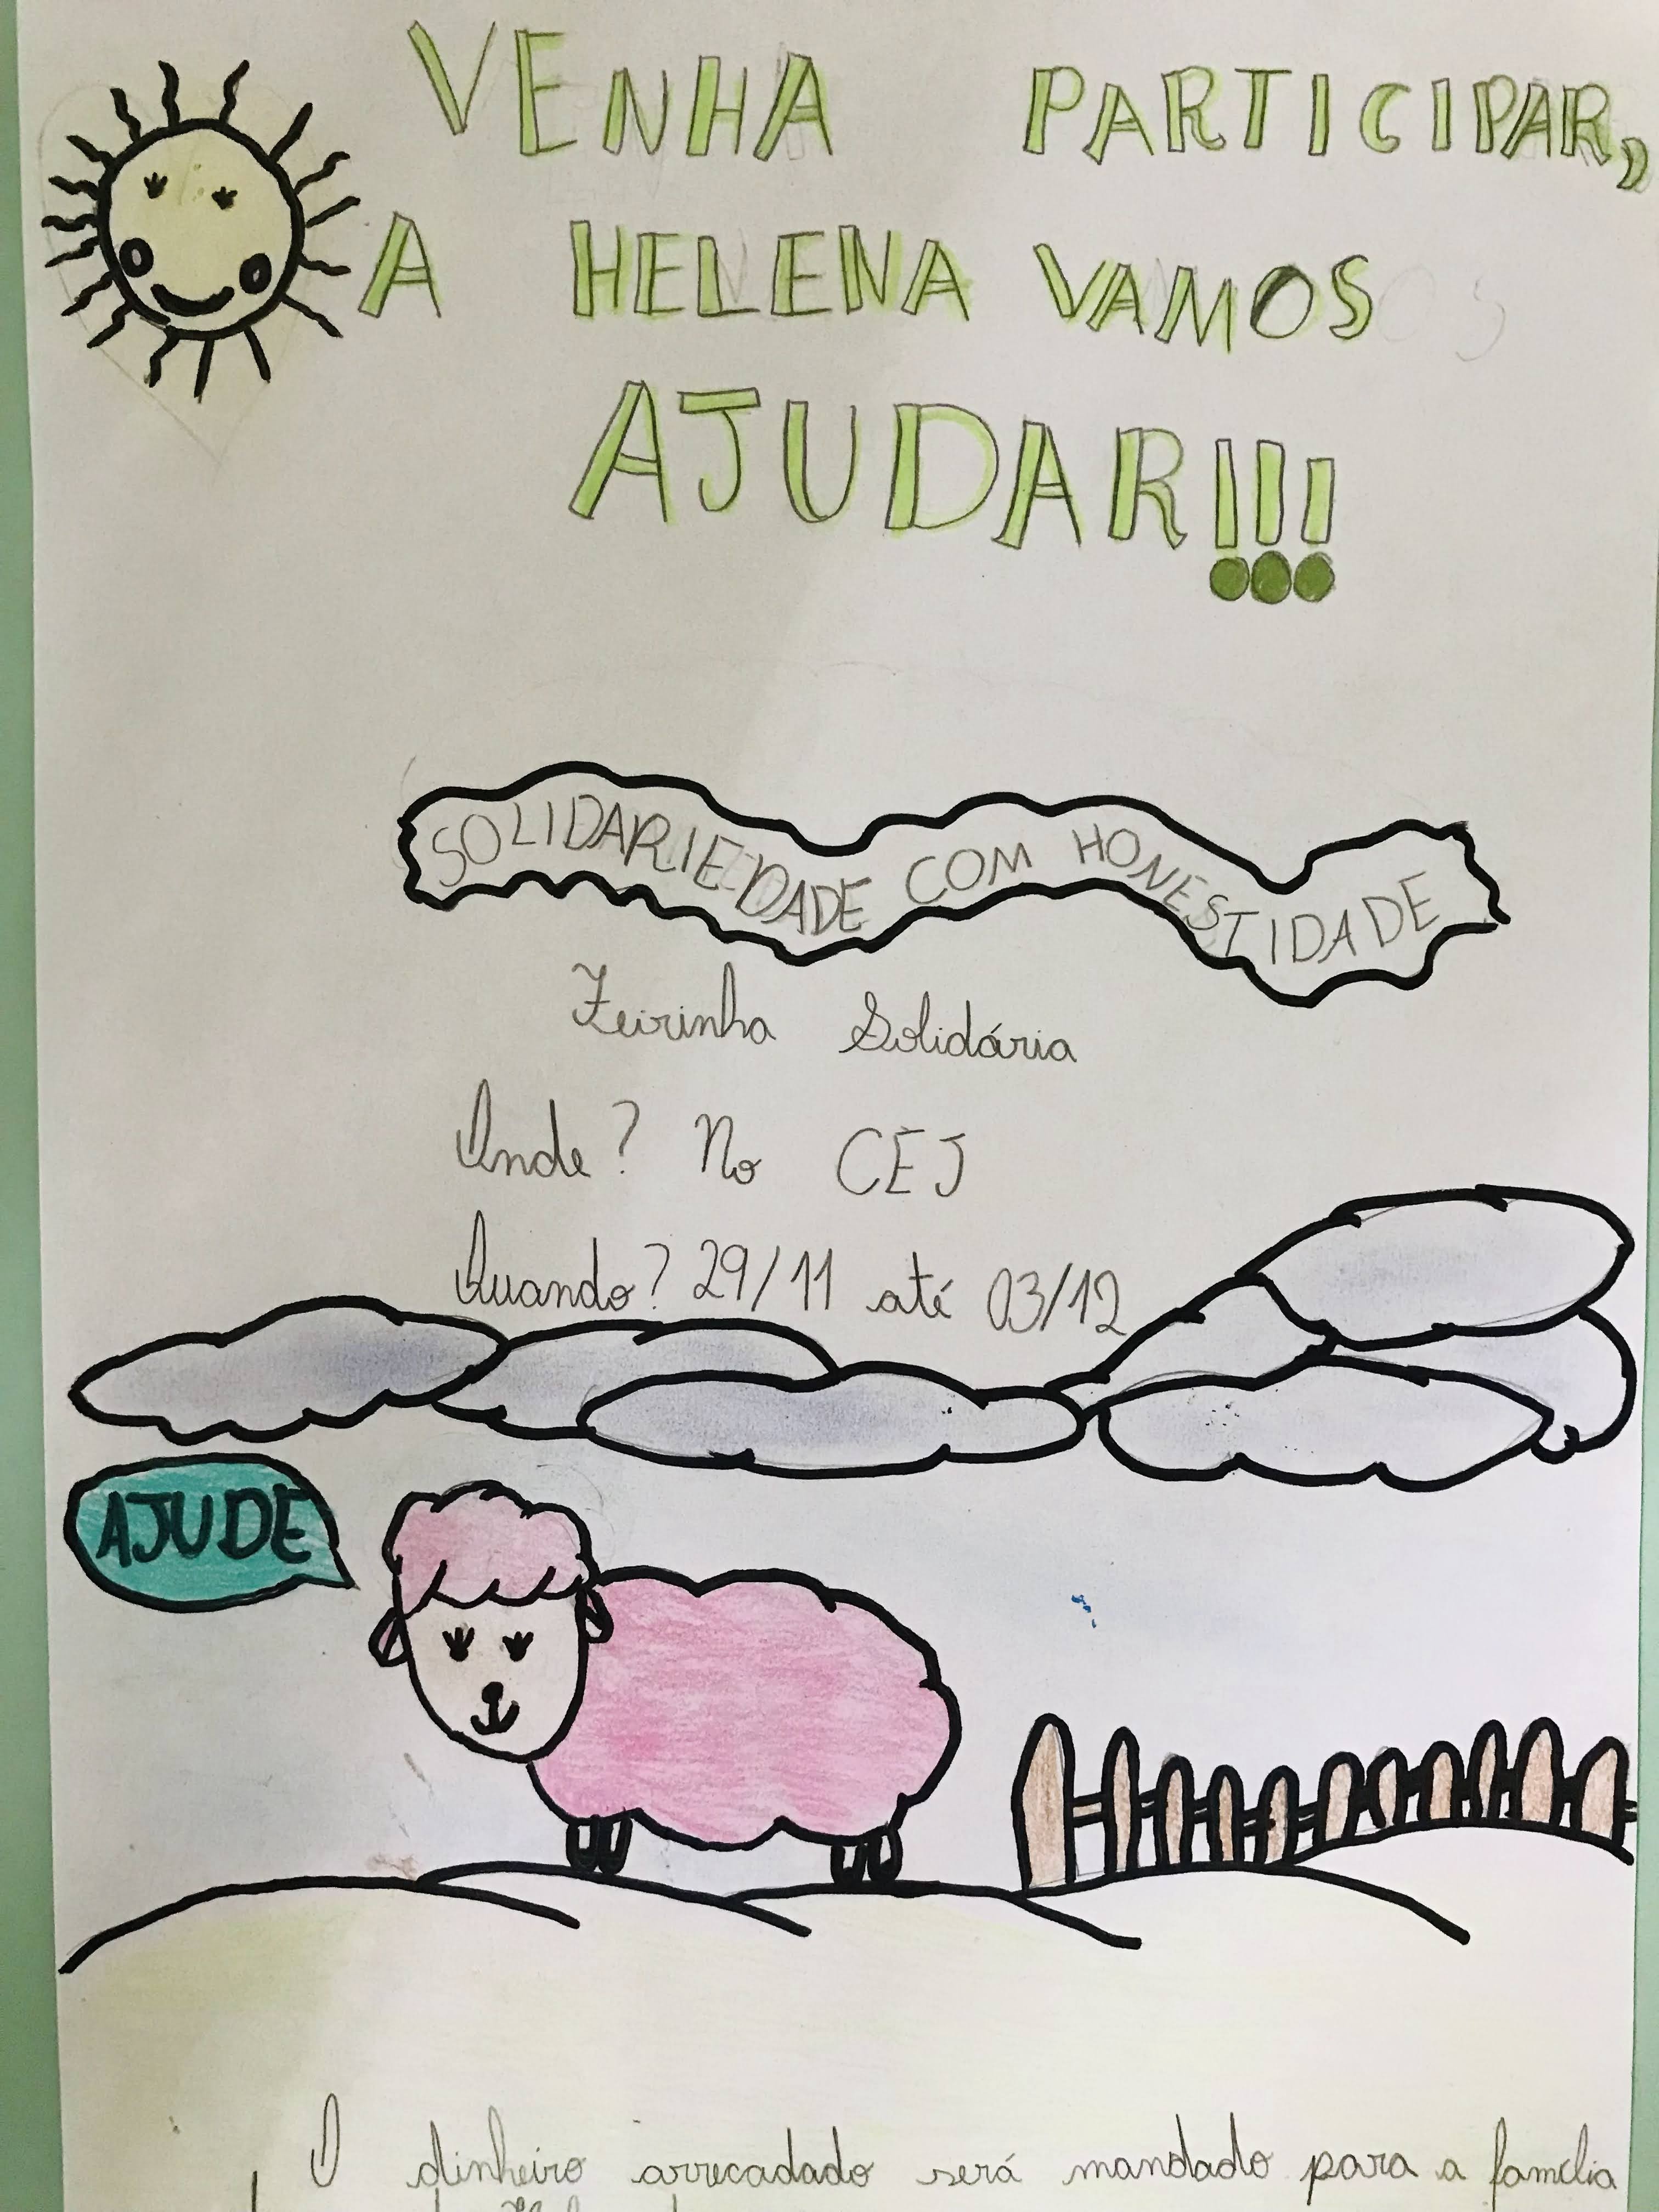 VENHA PARTICIPAR,
A HELENA VAMOS
AJUDAR!!!
SOLIDARIEDADE COM HONESTIDADE
Feirinha Solidária
Onde? No CEJ
Quando? 29/11 até 03/12
AJUDE
O dinheiro arrecadado será mandado para a família